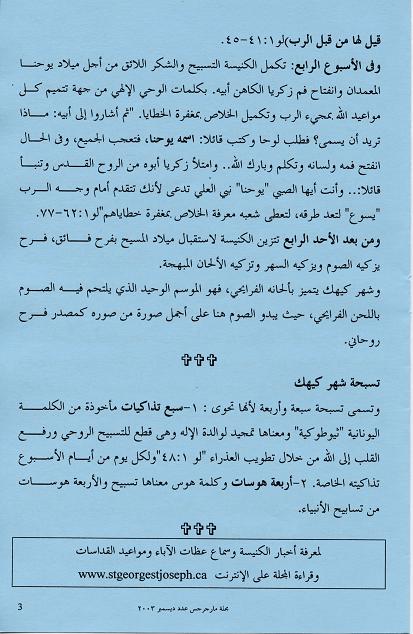 قيل لها من قبل الرب)لو١:٤١-٤٥.
وفى الأسبوع الرابع: تكمل الكنيسة التسبيح والشكر اللائق من أجل ميلاد يوحنا
المعمدان وانفتاح فم زكريا الكاهن أبيه. بكلمات الوحي الإلهي من جهة تتميم كل
مواعيد الله بمجيء الرب وتكميل الخلاص بمغفرة الخطايا. "ثم أشاروا إلى أبيه: ماذا
تريد أن يسمى؟ فطلب لوحا وكتب قائلا: اسمه يوحنا، فتعجب الجميع، وفى الحال
انفتح فمه ولسانه وتكلم وبارك الله.. وامتلأ زكريا أبوه من الروح القدس وتنبأ
قائلا:.. وأنت أيها الصبي "يوحنا" نبي العلي تدعى لأنك تتقدم أمام وجه الرب
"يسوع" لتعد طرقه، لتعطى شعبه معرفة الخلاص بمغفرة خطاياهم"لو١:٦٢-٧٧.
ومن بعد الأحد الرابع تتزين الكنيسة لاستقبال ميلاد المسيح بفرح فائق، فرح
يزكيه الصوم ويزكيه السهر وتزكيه الألحان المبهجة.
وشهر كيهك يتميز بألحانه الفرايحي، فهو الموسم الوحيد الذي يلتحم فيه الصوم
باللحن الفرايحي، حيث يبدو الصوم هنا على أجمل صورة من صوره كمصدر فرح
روحاني.
✞✞✞
تسبحة شهر كيهك
وتسمى تسبحة سبعة وأربعة لأنها تحوى : ١-سبع تذاكيات مأخوذة من الكلمة
اليونانية "ثيوطوكية" ومعناها تمجيد لوالدة الإله وهى قطع للتسبيح الروحي ورفع
القلب إلى الله من خلال تطويب العذراء "لو ١:٤٨"ولكل يوم من أيام الأسبوع
تذاكيته الخاصة. ٢-أربعة هوسات وكلمة هوس معناها تسبيح والأربعة هوسات
من تسابيح الأنبياء.
✞✞✞
لمعرفة أخبار الكنيسة وسماع عظات الآباء ومواعيد القداسات
وقراءة المجلة على الإنترنت www.stgeorgestjoseph.ca
مجلة مارجرجس عدد ديسمبر ٢٠٠٣
3